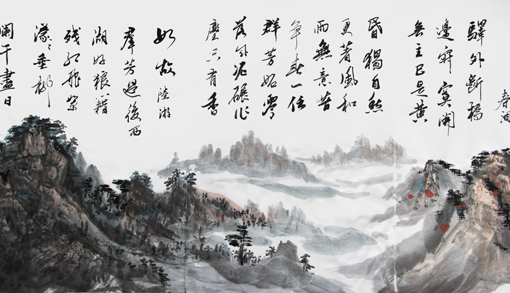 驛外断橋
邊寂寞開
無主已是黃
昏獨自愁
更著風和
雨無意苦
争春一任
群芳妒零
落成泥碾作
塵只有香
如故 陸游
群芳過後西
湖好狼籍
残红飛絮
濛濛垂柳
闌干盡日